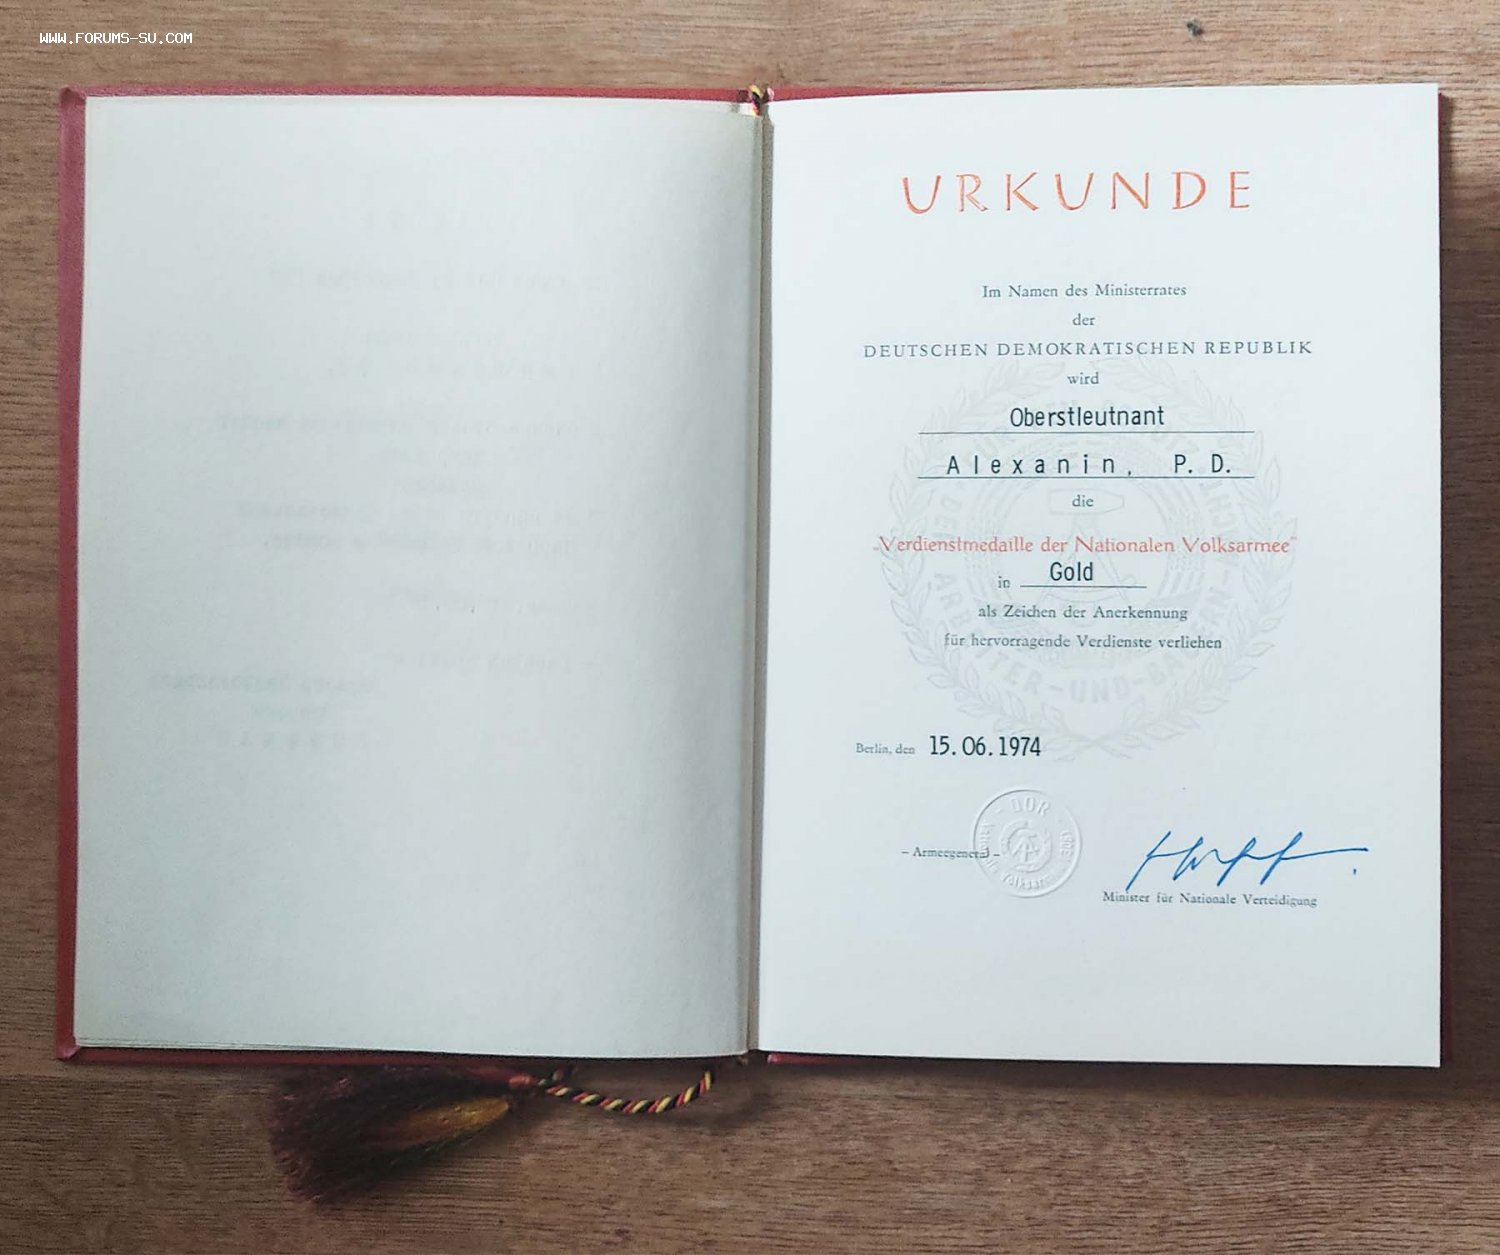 WWW.FORUMS-SU.COM
URKUNDE
Im Namen des Ministerrates
der
DEUTSCHEN DEMOKRATISCHEN REPUBLIK
wird
Oberstleutnant
Alexanin, P. D.
die
„Verdienstmedaille der Nationalen Volksarmee“
in Gold
als Zeichen der Anerkennung
für hervorragende Verdienste verliehen
Berlin, den 15.06.1974
DDR
– Armeegeneral –
Minister für Nationale Verteidigung